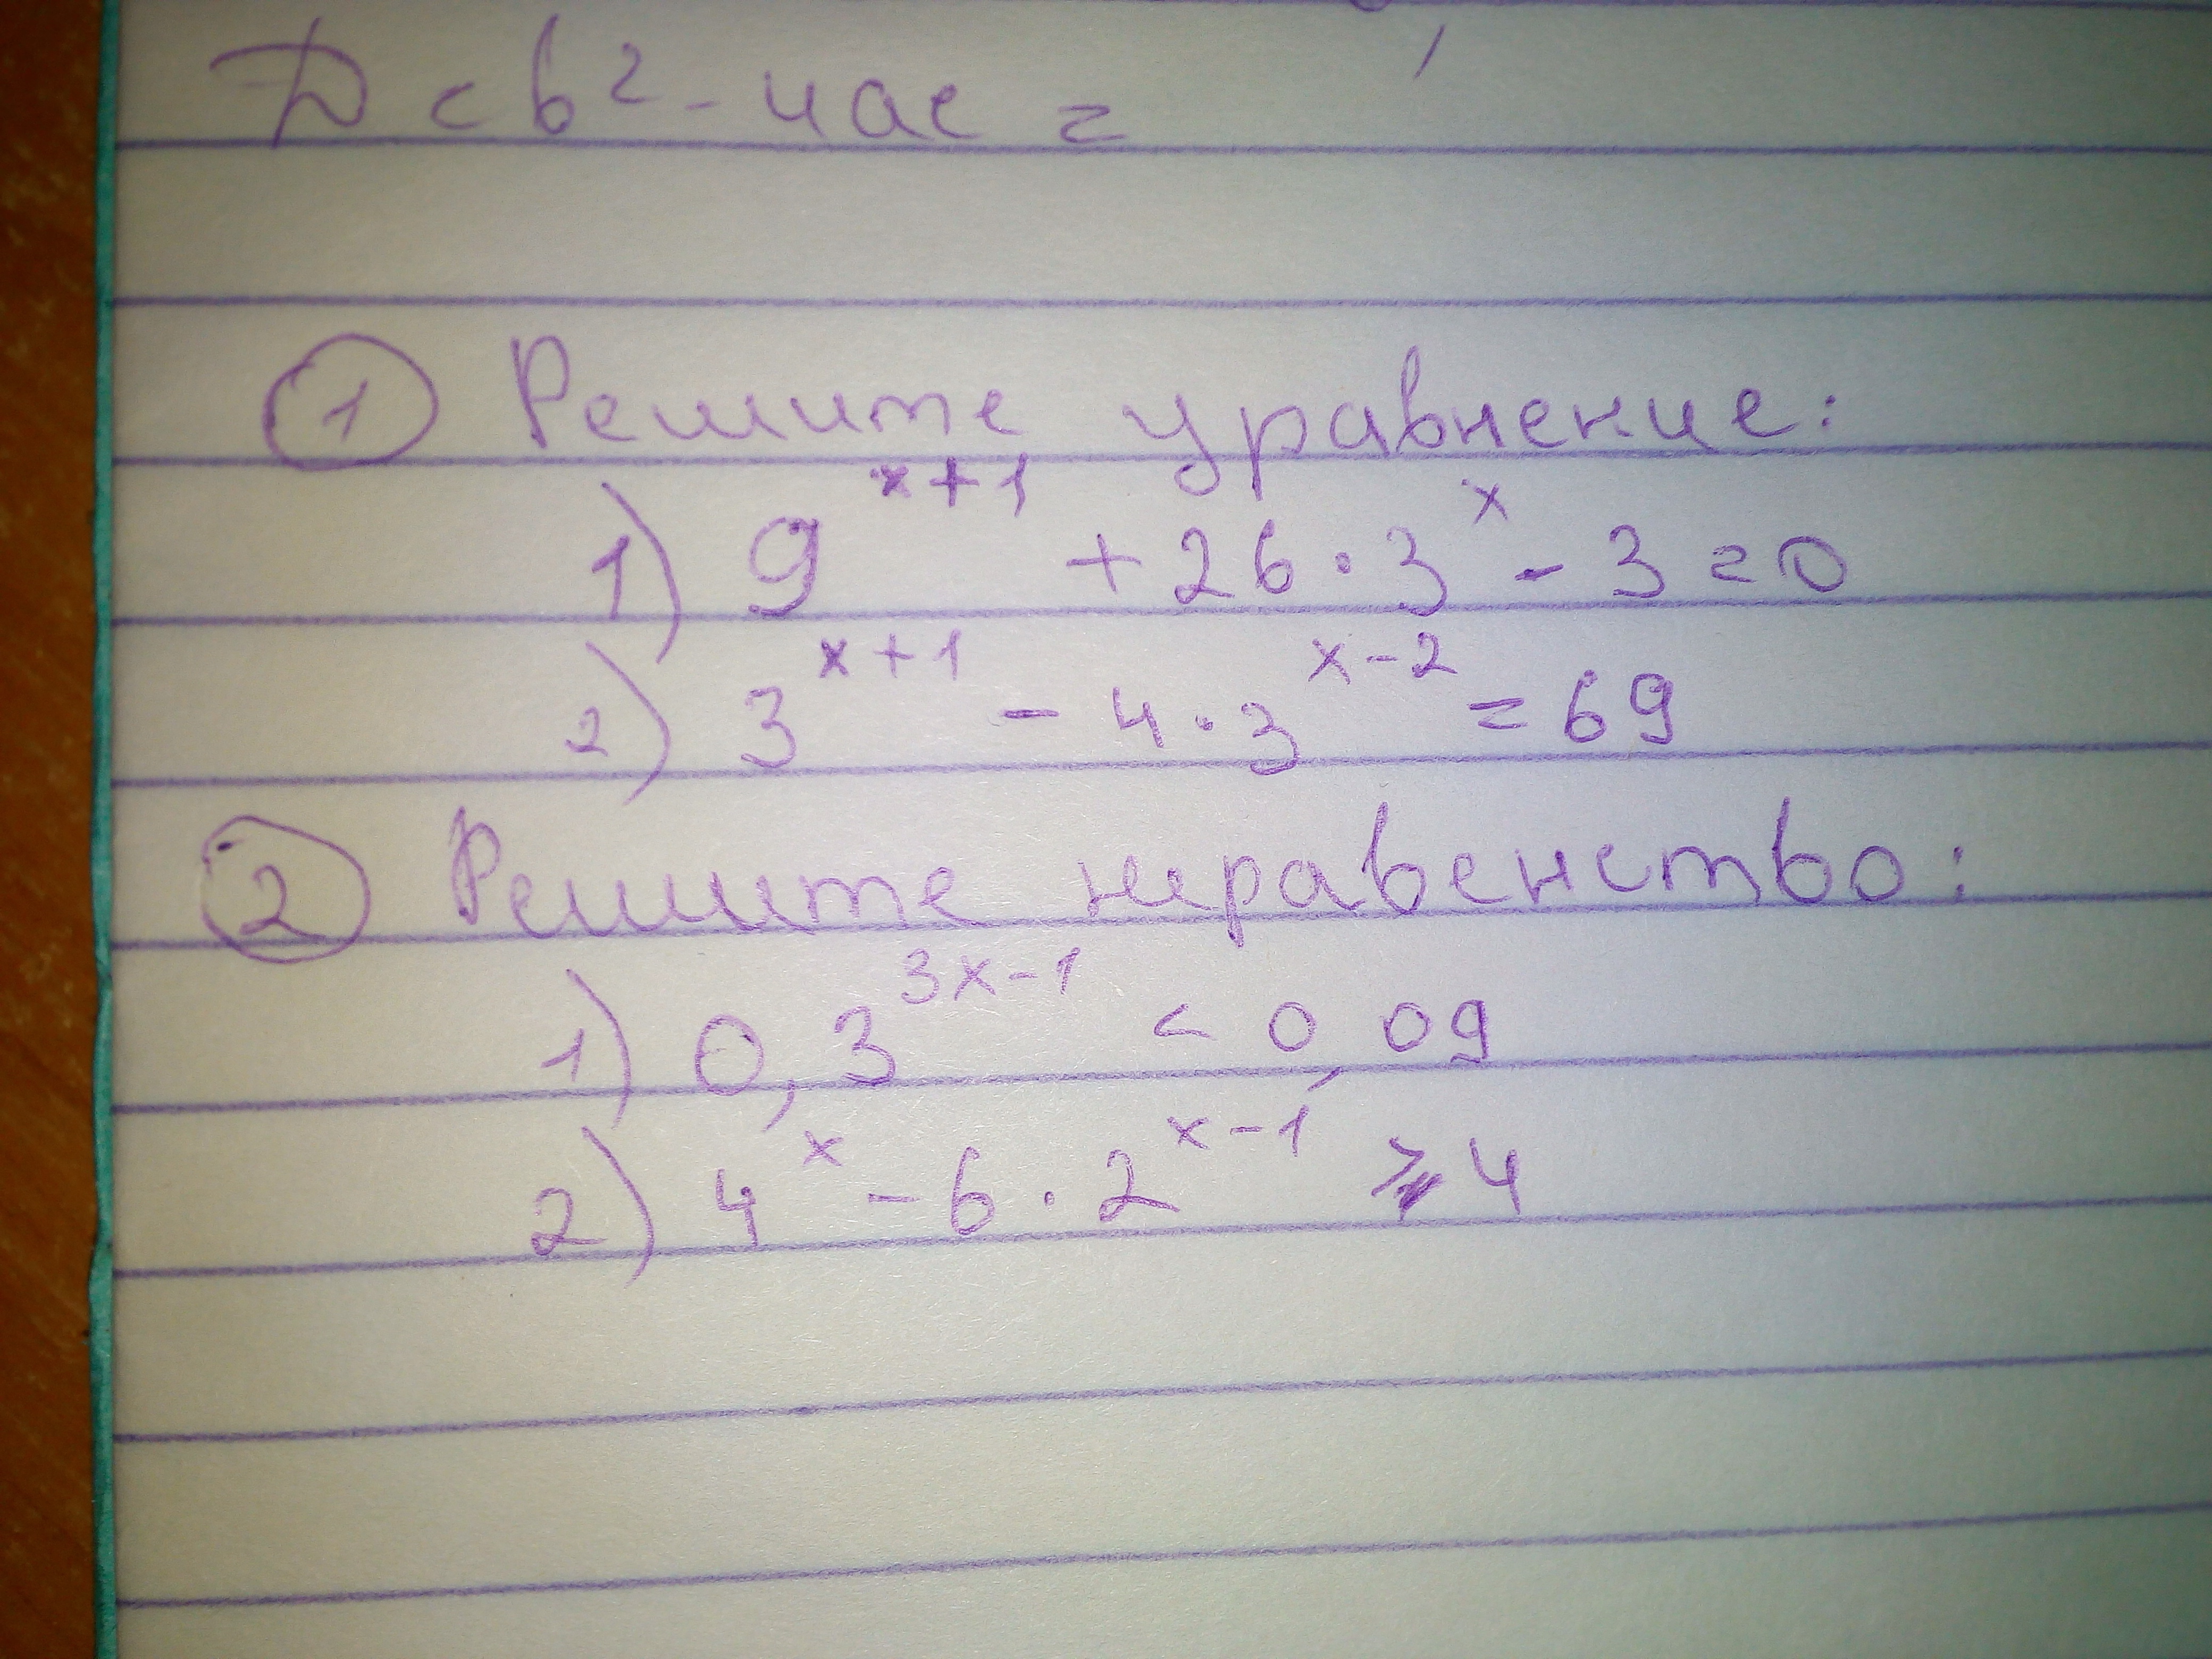 D = b² - 4ac =
① Решите уравнение:
1) 9^{x+1} + 26 · 3^x - 3 = 0
2) 3^{x+1} - 4 · 3^{x-2} = 69
② Решите неравенство:
1) 0,3^{3x-1} < 0,09
2) 4^x - 6 · 2^{x-1} ⩾ 4